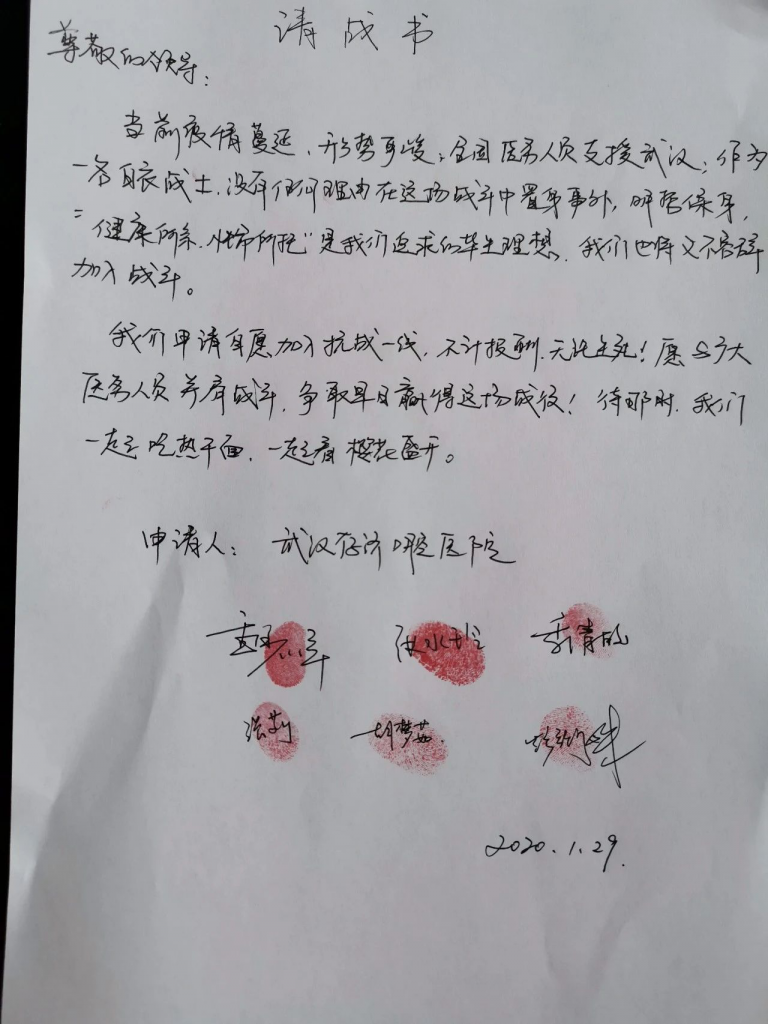 请战书
尊敬的领导：
当前疫情蔓延，形势严峻，全国医务人员支援武汉，作为
一名白衣战士，没有任何理由在这场战斗中置身事外，明哲保身，
“健康所系，性命所托”是我们追求的毕生理想，我们也将义不容辞
加入战斗。
我们申请自愿加入抗战一线，不计报酬，无论生死！愿与广大
医务人员并肩战斗，争取早日赢得这场战役！待那时，我们
一起吃热干面，一起看樱花盛开。
申请人：武汉存济口腔医院
张莉 胡梦茹
2020.1.29.